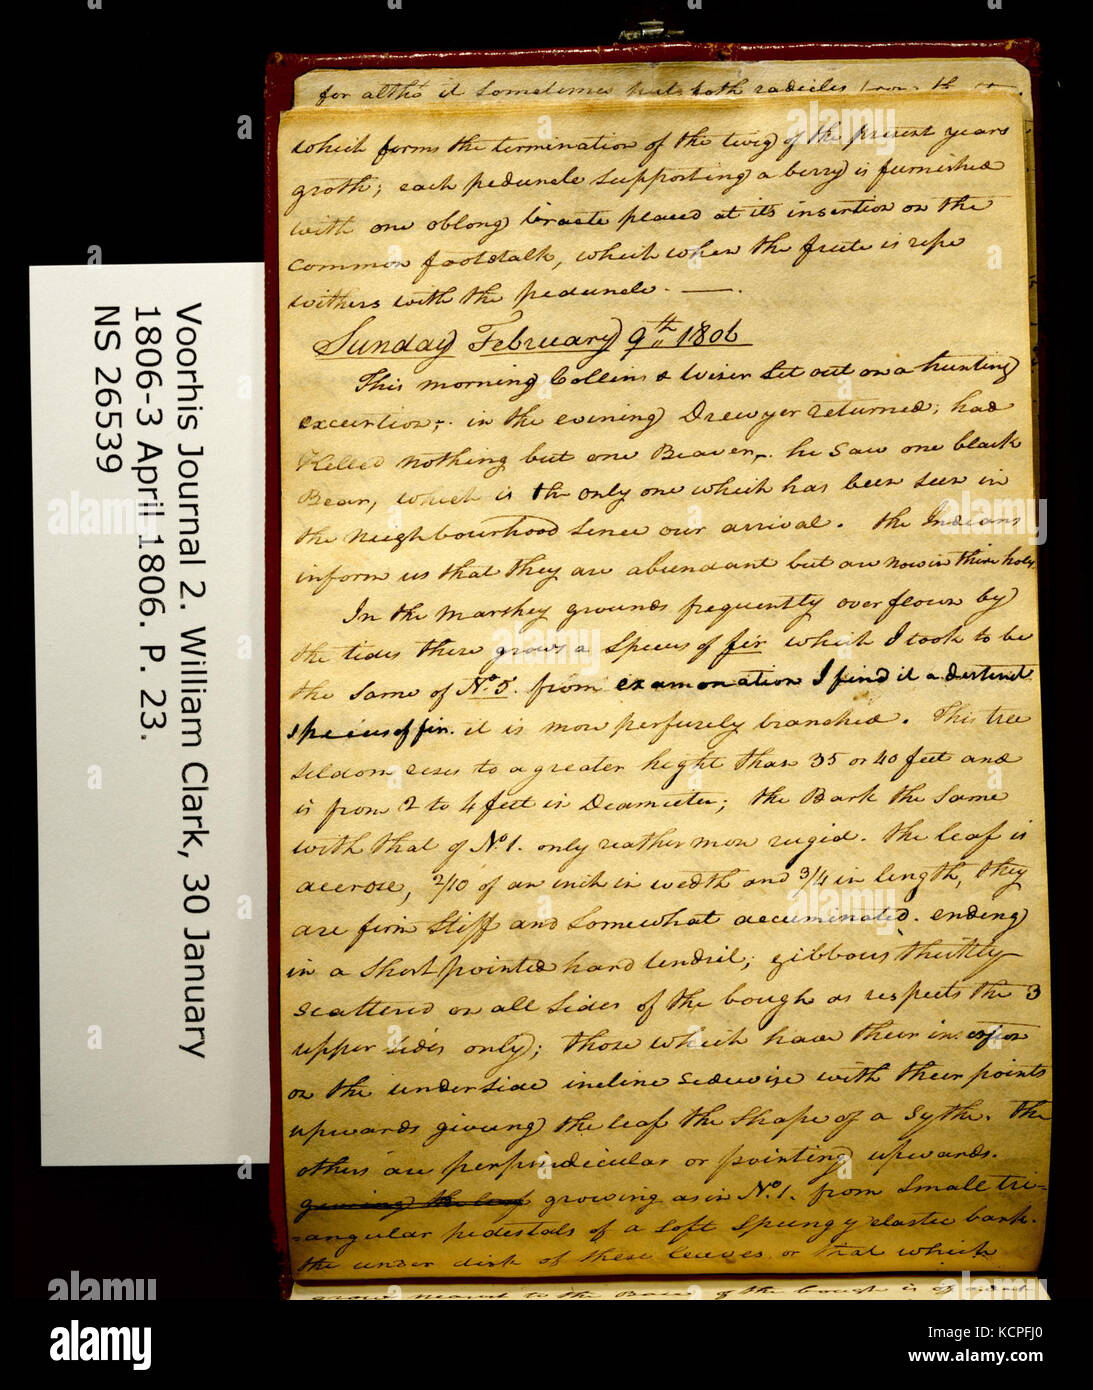 for altho' it sometimes puts both radicles from the
which forms the termination of the twig of the present years
groth; each peduncle supporting a berry is furnished
with one oblong bracte placed at its insertion on the
common footstalk, which when the frute is ripe
withers with the peduncle. —.
Sunday February 9th 1806
This morning Collins & Wiser Set out on a hunting
excurtion; in the evening Drewyer returned; had
Killed nothing but one Beaver, he Saw one black
Bear, which is the only one which has been seen in
the neighbourhood since our arrival. the Indians
inform us that they are abundant but are now in their holes
In the marshey grounds frequently overflown by
the tides there grows a Species of fir which I took to be
the same of No. 5. from examonation I find it a distinct
species of fir. it is more perfusely branched. This tree
seldom rises to a greater hight than 35 or 40 feet and
is from 2 to 4 feet in Diamieter; the Bark the same
with that of No. 1. only reather more rugid. the leaf is
accrose, 2/10 of an inch in wedth and 3/4 in length, they
are firm stiff and somewhat accuminated. ending
in a short pointed hard tendril, gibbous thickly
scattered on all sides of the bough as respects the 3
upper sides only; those which have their insertion
on the underside incline sidewise with their points
upwards giveing the leaf the shape of a Sythe. the
others are perpindicular or pointing upwards.
giveing the leaf growing as in No. 1. from small tri=
=angular pedestals of a soft spungy elastic bark.
the under disk of these leaves or that which
grows nearest to the Base of the bough is of a
Voorhis Journal 2. William Clark, 30 January
1806-3 April 1806. P. 23.
NS 26539
alamy
a
alamy
Image ID: KCPFJ0
www.alamy.com